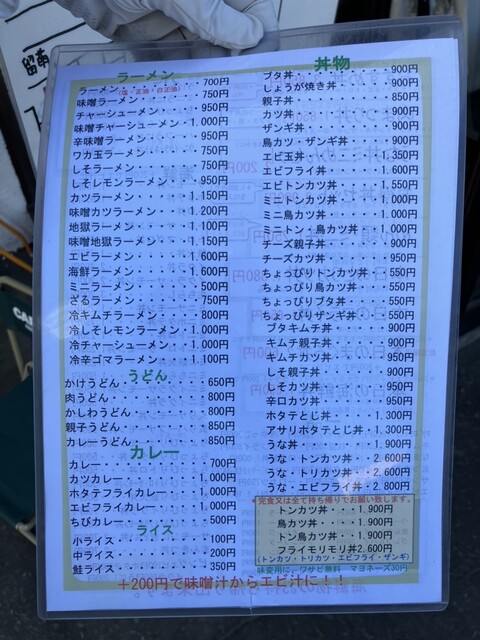 ラーメン
ラーメン・・・・・・・・700円
(塩・正油・白正油)
味噌ラーメン・・・・・・750円
チャーシューメン・・・・950円
味噌チャーシューメン・1.000円
辛味噌ラーメン・・・・・950円
ワカ玉ラーメン・・・・・750円
しそラーメン・・・・・・750円
しそレモンラーメン・・・950円
カツラーメン・・・・・1.150円
味噌カツラーメン・・・1.200円
地獄ラーメン・・・・・1.100円
味噌地獄ラーメン・・・1.150円
エビラーメン・・・・・1.600円
海鮮ラーメン・・・・・1.600円
ミニラーメン・・・・・・500円
ざるラーメン・・・・・・750円
冷キムチラーメン・・・1.000円
冷しそレモンラーメン・1.000円
冷チャーシューメン・・1.000円
冷辛ゴマラーメン・・・1.100円
うどん
かけうどん・・・・・・・650円
肉うどん・・・・・・・・800円
かしわうどん・・・・・・800円
親子うどん・・・・・・・850円
カレーうどん・・・・・・850円
カレー
カレー・・・・・・・・・700円
カツカレー・・・・・・1.000円
ホタテフライカレー・・1.000円
エビフライカレー・・・1.000円
ちびカレー・・・・・・・500円
ライス
小ライス・・・・・・・・100円
中ライス・・・・・・・・200円
鮭ライス・・・・・・・・350円
丼物
ブタ丼・・・・・・・・・900円
しょうが焼き丼・・・・・900円
親子丼・・・・・・・・・850円
カツ丼・・・・・・・・・900円
ザンギ丼・・・・・・・・900円
鳥カツ・ザンギ丼・・・・900円
エビ玉丼・・・・・・・1.350円
エビフライ丼・・・・・1.600円
エビトンカツ丼・・・・1.550円
ミニトンカツ丼・・・・1.000円
ミニ鳥カツ丼・・・・・1.000円
ミニトン・鳥カツ丼・・1.000円
チーズ親子丼・・・・・・900円
チーズカツ丼・・・・・・950円
ちょっぴりトンカツ丼・・550円
ちょっぴり鳥カツ丼・・・550円
ちょっぴりブタ丼・・・・550円
ちょっぴりザンギ丼・・・550円
ブタキムチ丼・・・・・・900円
キムチ親子丼・・・・・・900円
キムチカツ丼・・・・・・950円
しそ親子丼・・・・・・・900円
しそカツ丼・・・・・・・950円
辛口カツ丼・・・・・・・950円
ホタテとじ丼・・・・・1.300円
アサリホタテとじ丼・・1.300円
うな丼・・・・・・・・1.900円
うな・トンカツ丼・・・2.600円
うな・トリカツ丼・・・2.600円
うな・エビフライ丼・・2.800円
完食又は全て持ち帰りでお願い致します。
トンカツ丼・・・1.900円
鳥カツ丼・・・・1.900円
トン鳥カツ丼・・1.900円
フライモリモリ丼2.600円
(トンカツ・トリカツ・エビフライ・ザンギ)
味変用に、ワサビ無料 マヨネーズ30円
＋200円で味噌汁からエビ汁に！！